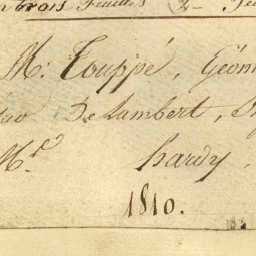 trois Feuilles 2
M: Touppé, Géom
De Lambert,
M.r hardy,
1810.